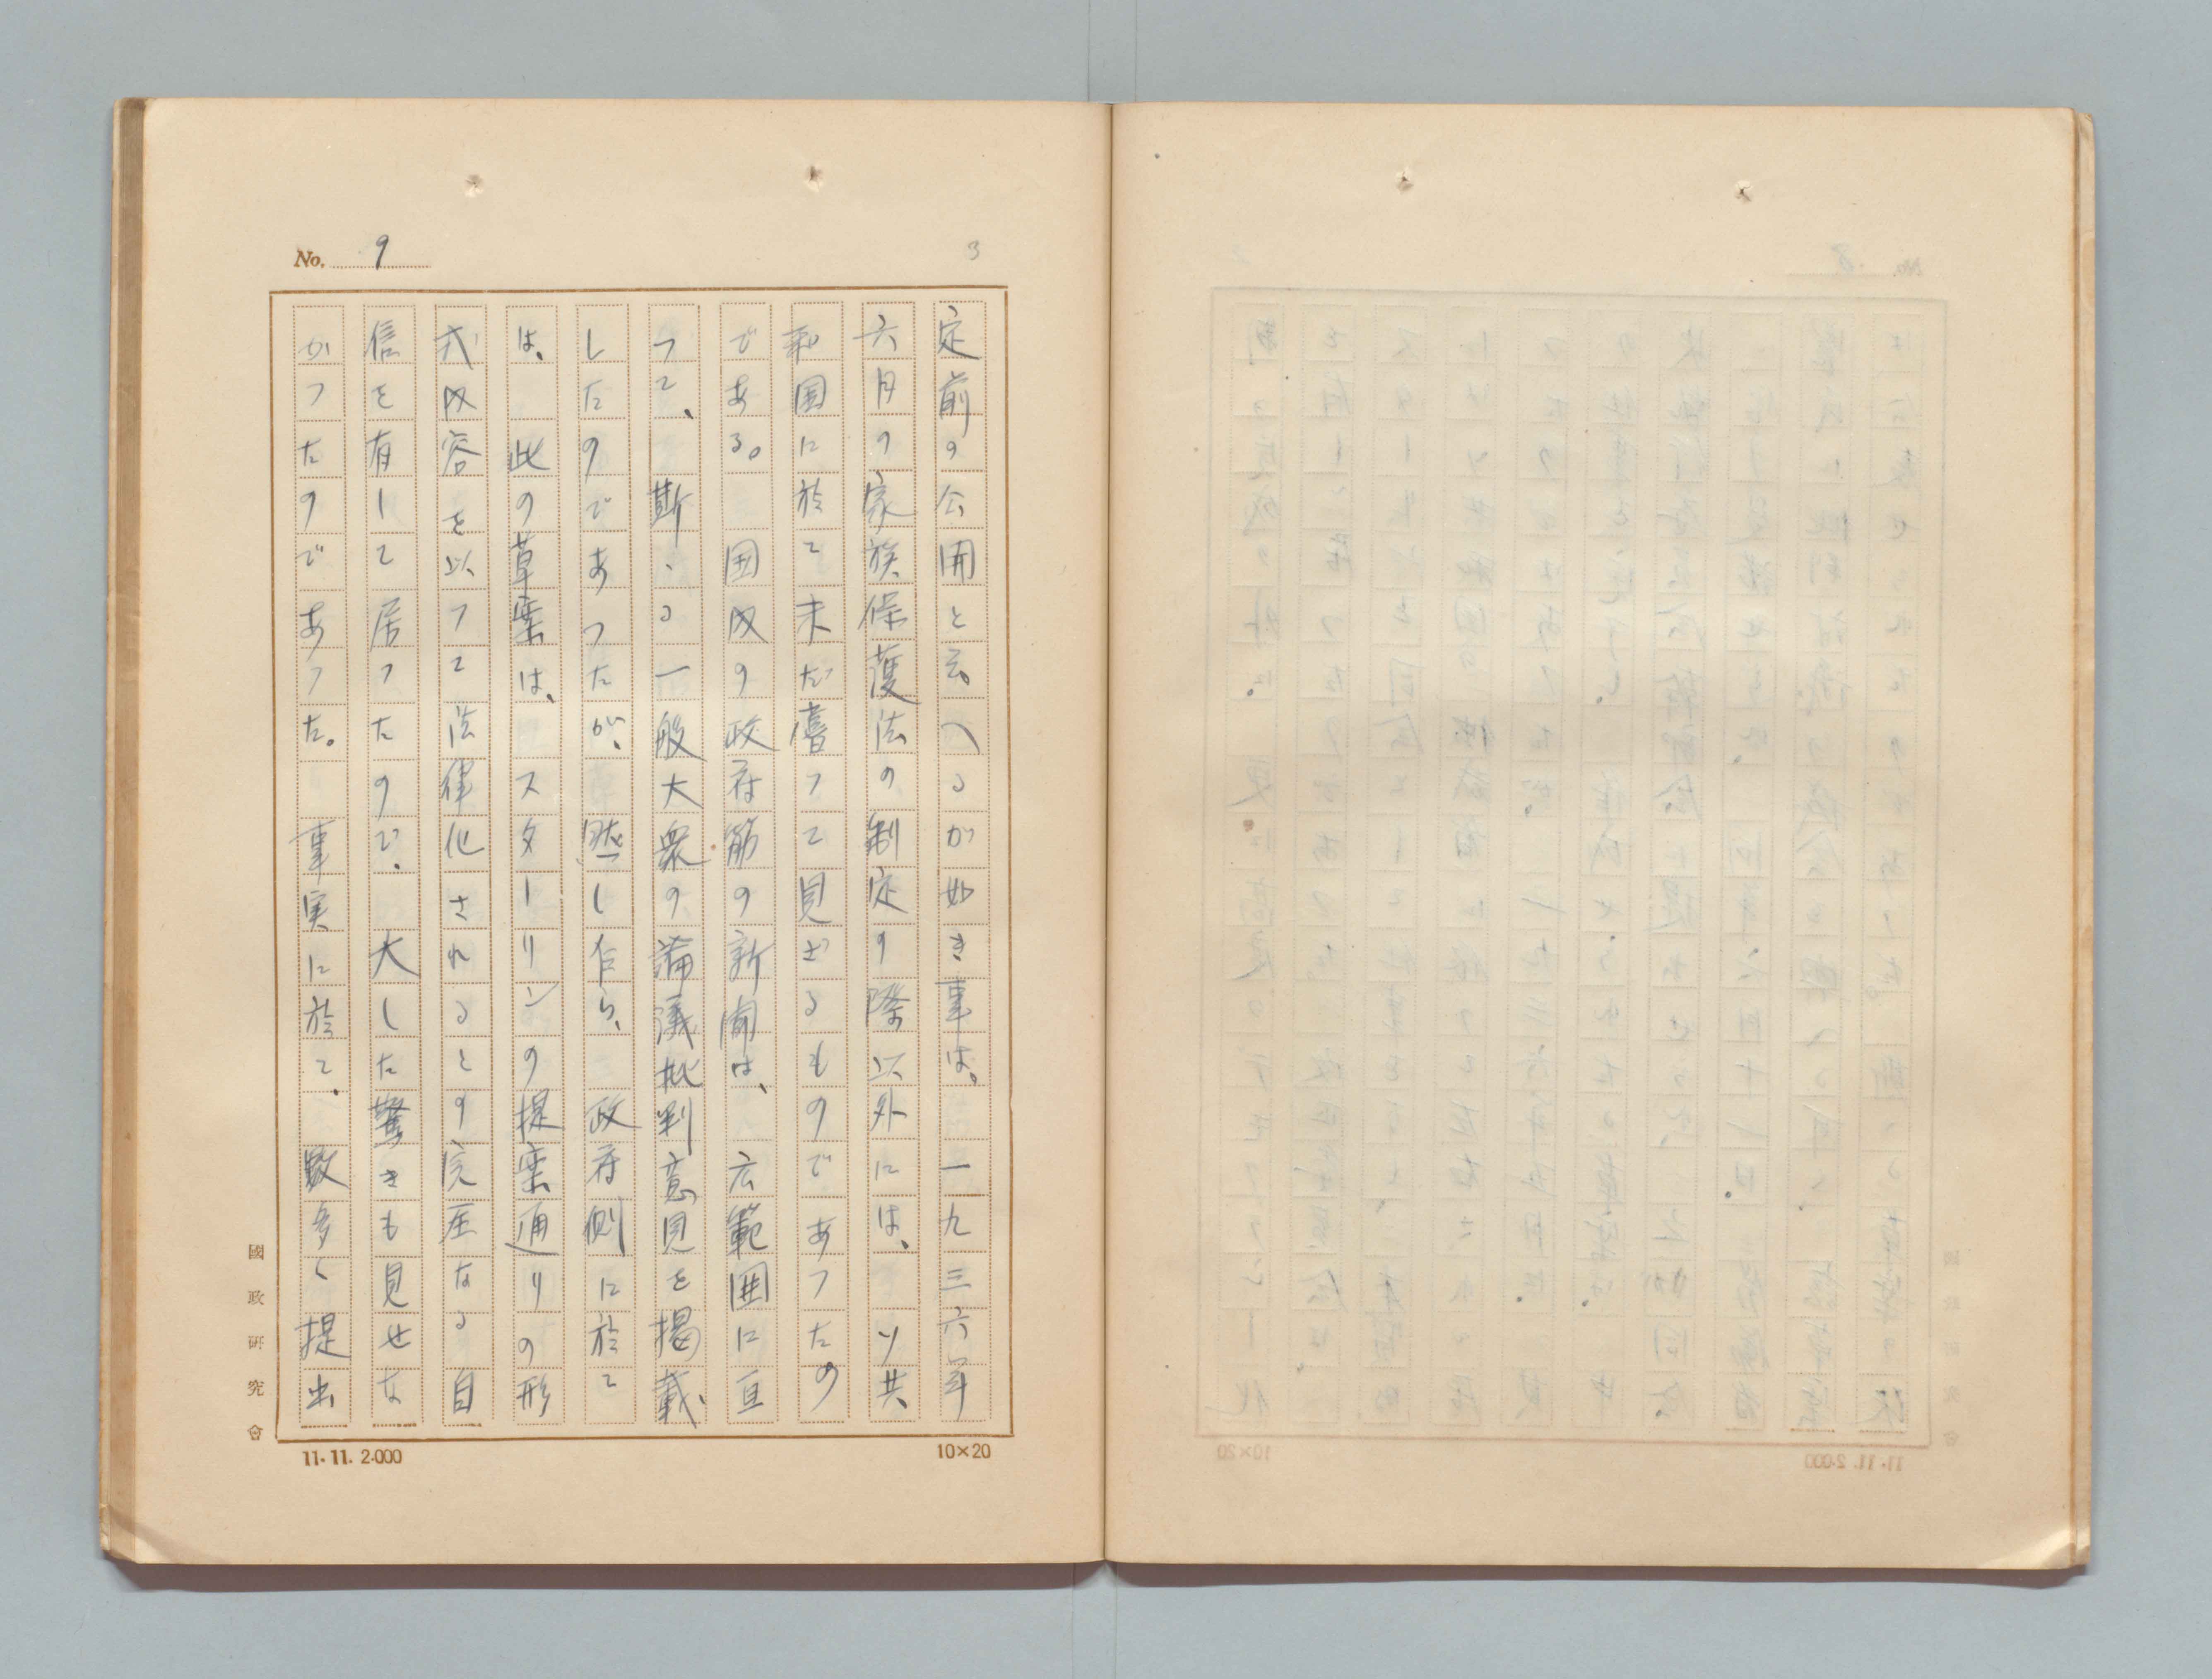 No. 9
3
定前の公開と云へるが如き事は。　一九三六年
六月の家族保護法の制定の際以外には、　ソ共
和国に於て未だ嘗つて見ざるものであつたの
である。　国内の政府筋の新聞は、　広範囲に亘
つて、　斯、る一般大衆の論議批判意見を掲載、
したのであつたが、　然し乍ら、　政府側に於て
は、　此の草案は、　スターリンの提案通りの形
式内容を以つて法律化されるとの完圧なる自
信を有して居つたので、　大した驚きも見せな
かつたのであつた。　事実に於て、　数多く提出
國政研究會
11.11.2.000
10×20